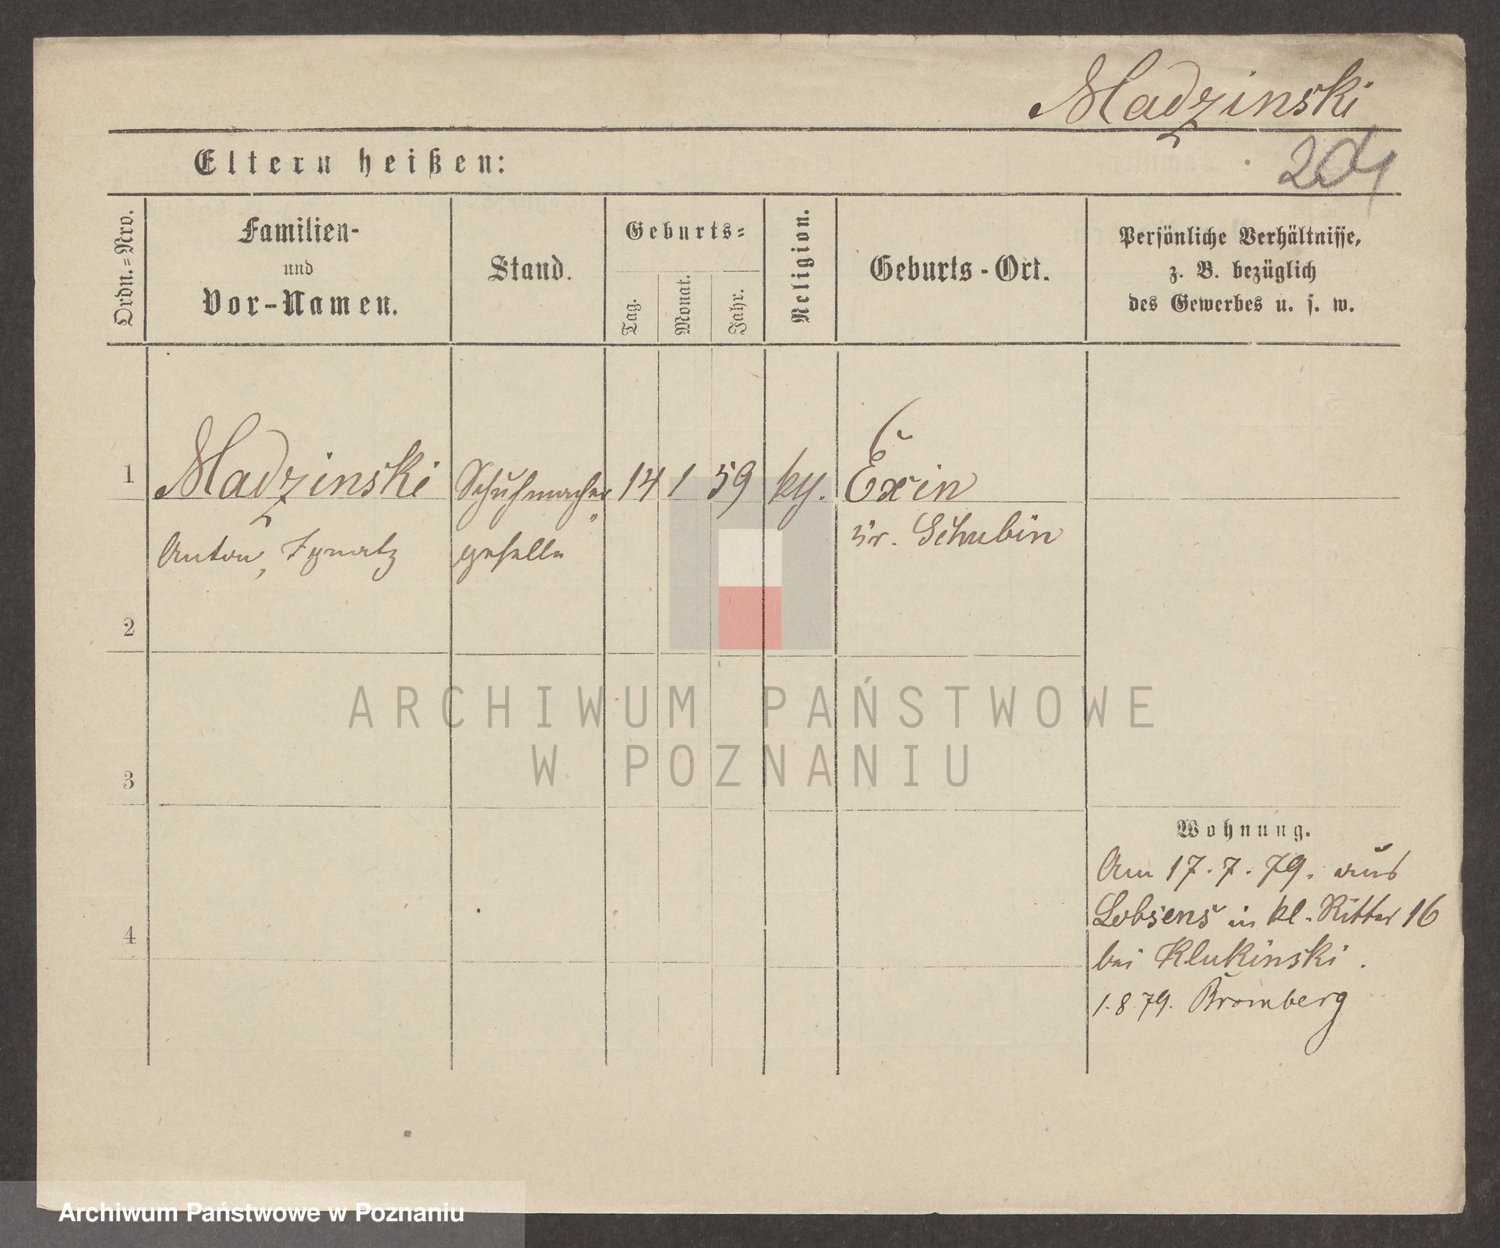 Madzinski
204
Eltern heißen:
Ordn.=Nro.
Familien-
und
Vor-Namen.
Stand.
Geburts=
Tag.
Monat.
Jahr.
Religion.
Geburts-Ort.
Persönliche Verhältnisse,
z. B. bezüglich
des Gewerbes u. s. w.
1
Madzinski
Schuhmacher
14
1
59
Exin
Anton, Ignatz
geselle
Kr. Schubin
2
3
4
Wohnung.
Am 17.7.79. aus
Lobsens in kl. Ritter 16
bei Klukinski.
1.8.79. Bromberg
ARCHIWUM PAŃSTWOWE
W POZNANIU
Archiwum Państwowe w Poznaniu